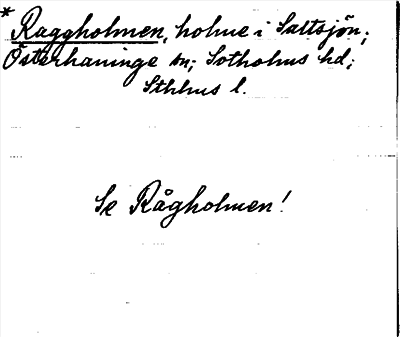 * Raggholmen, holme i Saltsjön;
Österhaninge sn; Sotholms hd;
Sthlms l.
Se Rågholmen!